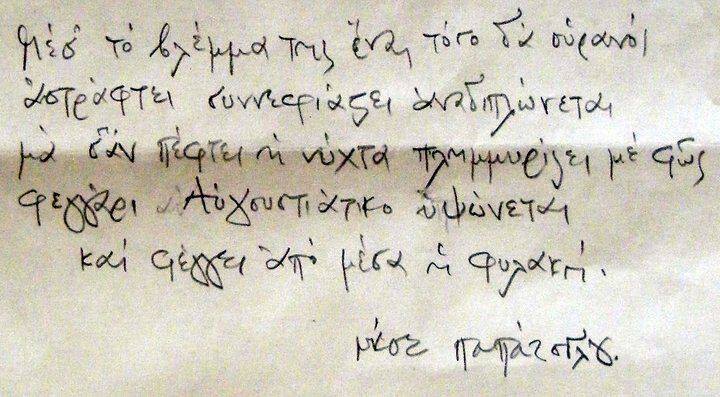 Μέσ' τὸ βλέμμα της ἕνας τόσο δὰ οὐρανός
ἀστράφτει συννεφιάζει ἀναδιπλώνεται
μὰ σὰν πέφτει ἡ νύχτα πλημμυρίζει μὲ φῶς
φεγγάρι Αὐγουστιάτικο ὑψώνεται
καὶ φέγγει ἀπὸ μέσα ἡ φυλακή.
Νίκος Παπάζογλου.